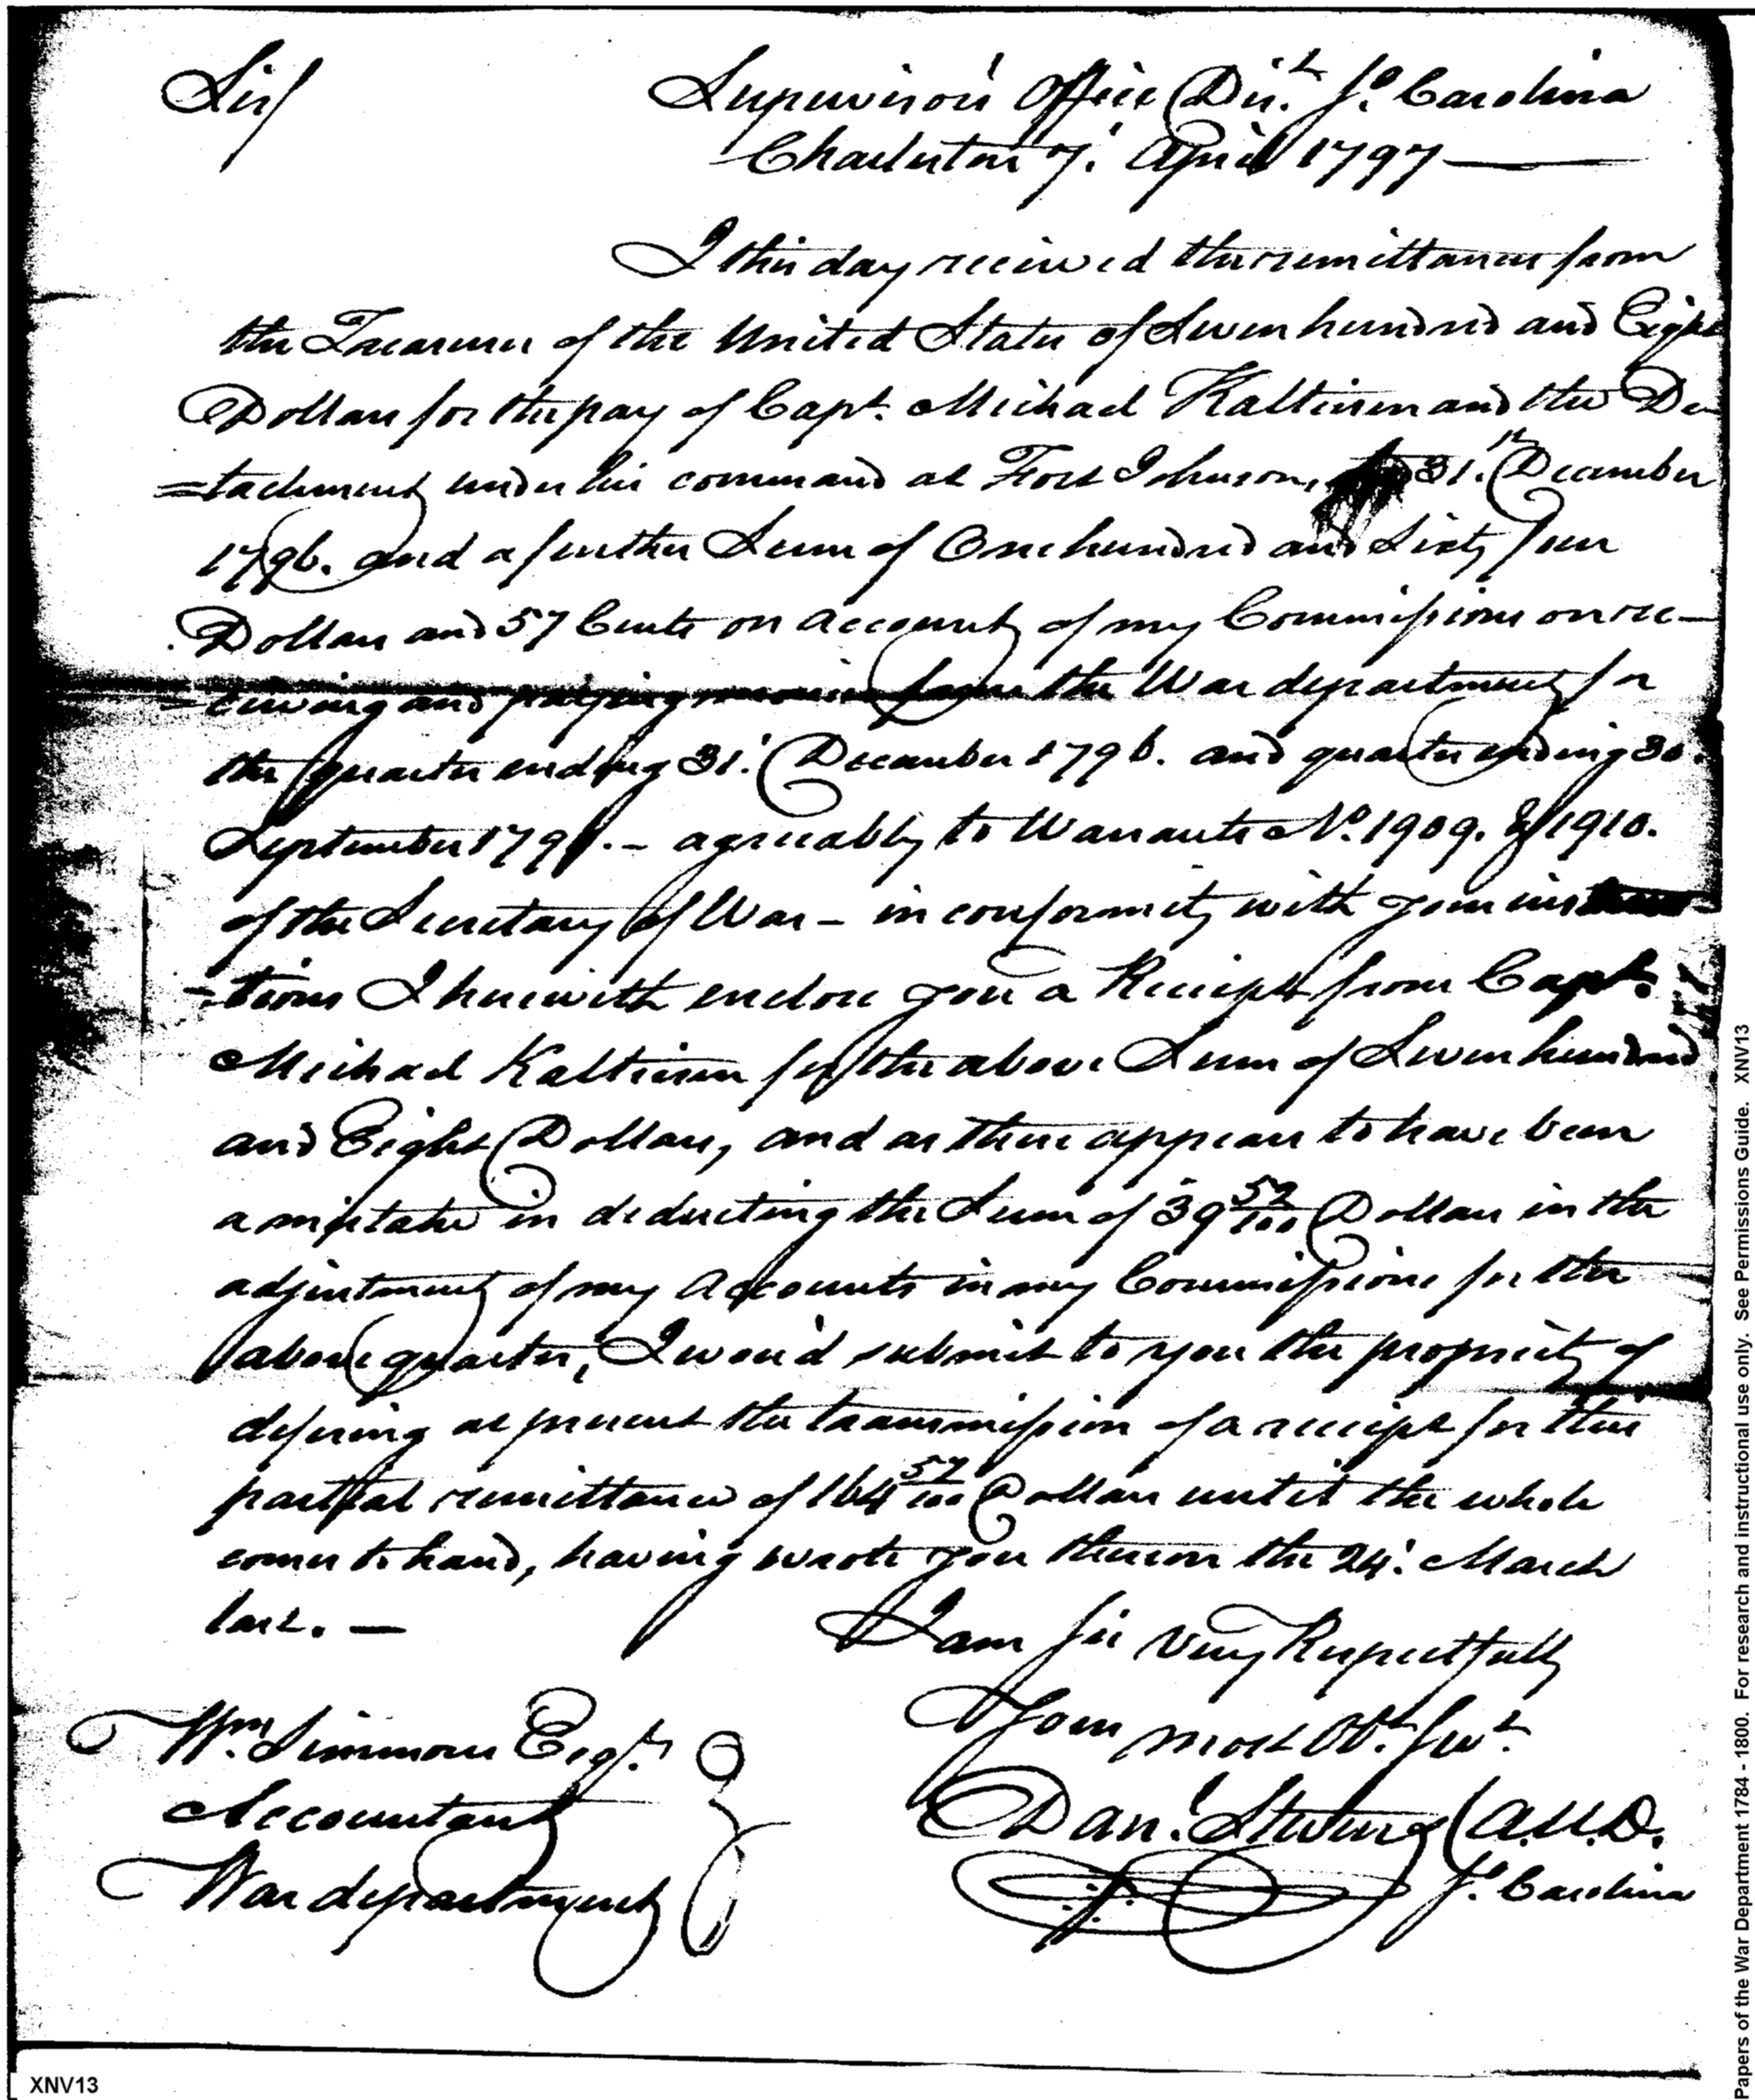 Sir/
Supervisors Office Dis.t So. Carolina
Charleston 7. April 1797
I this day received the remittances from
the Treasurer of the United States of Seven hundred and Eight
Dollars for the pay of Capt. Michael Kalteisen and the De
=tachment under his command at Fort Johnson, 31. December
1796. and a further Sum of One hundred and Sixty four
Dollars and 57 Cents on account of my Commissions on re-
=ceiving and paying monies from the War department for
the quarter ending 31. December 1796. and quarter ending 30.
September 179 .- agreeably to Warrants No. 1909. & 1910.
of the Secretary of War - in conformity with your instruc-
-tions I herewith enclose you a Receipt from Capt.
Michael Kalteisen for the above Sum of Seven hundred
and Eight Dollars, and as there appears to have been
a mistake in deducting the Sum of 39 52/100 Dollars in the
adjustment of my Accounts in my Commissions for the
above quarter, I wou'd submit to you the propriety of
defering at present the transmission of a receipt for this
partial remittance of 164 57/100 Dollars until the whole
comes to hand, having wrote you thereon the 24. March
last. —
I am Sir Very Respectfully
Your most Ob.t Serv.t
Wm. Simmons Esqr.
Accountant
War department
Dan.l Stevens
So. Carolina
XNV13
Papers of the War Department 1784 - 1800. For research and instructional use only. See Permissions Guide. XNV13